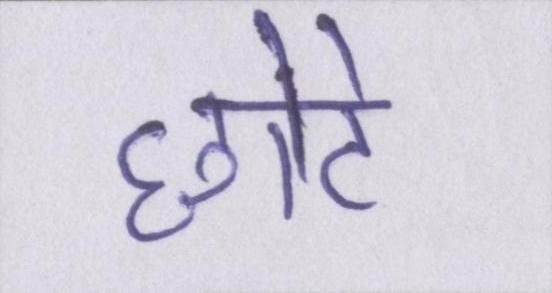 छोटे